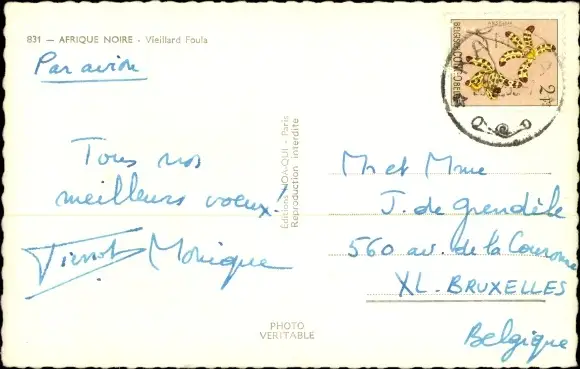 831 — AFRIQUE NOIRE - Vieillard Foula
Par avion
Tous nos
meilleurs voeux!
Pierrot Monique
Editions HOA-QUI - Paris
Reproduction interdite
PHOTO
VERITABLE
ANSELLIA
Mr et Mme
J. de Grendèle
560 av. de la Couronne
XL. BRUXELLES
Belgique